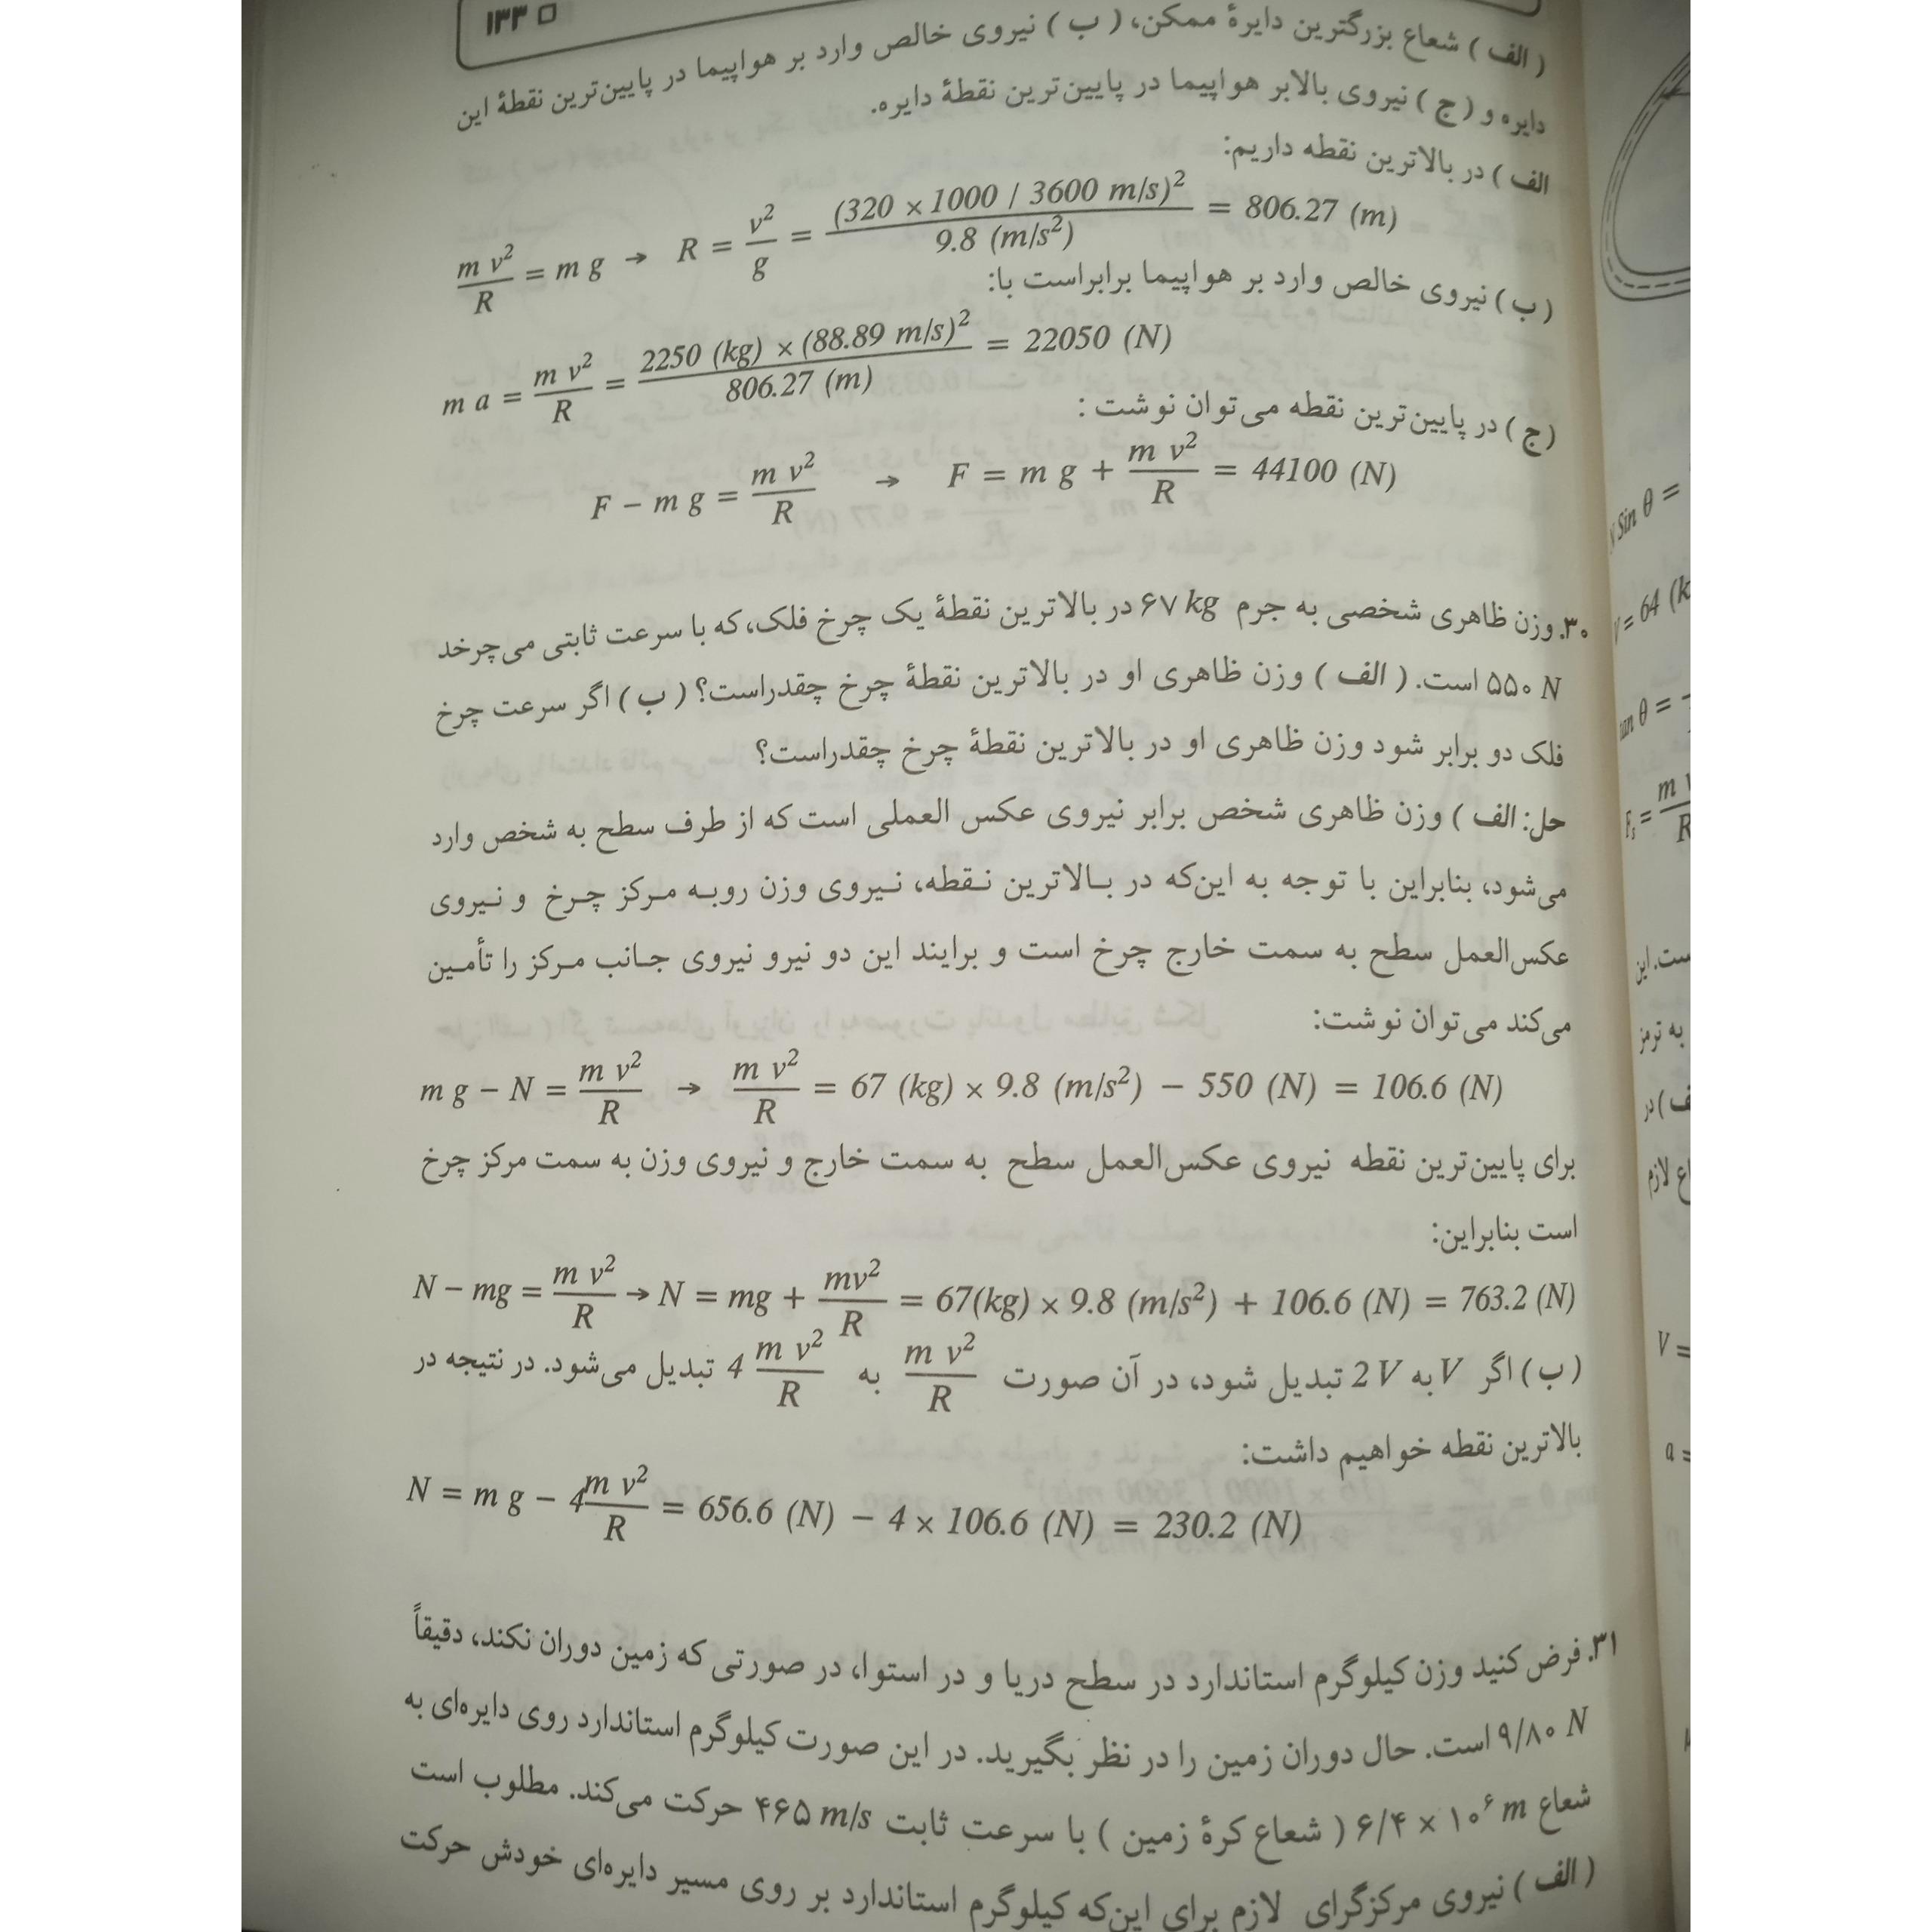 ۱۳۳
( الف ) شعاع بزرگترین دایرهٔ ممکن، ( ب ) نیروی خالص وارد بر هواپیما در پایین‌ترین نقطهٔ این
دایره و ( ج ) نیروی بالابر هواپیما در پایین‌ترین نقطهٔ دایره.
الف ) در بالاترین نقطه داریم:
m v²/R = m g → R = v²/g = (320 × 1000 / 3600 m/s)²/9.8 (m/s²) = 806.27 (m)
( ب ) نیروی خالص وارد بر هواپیما برابراست با:
m a = m v²/R = 2250 (kg) × (88.89 m/s)²/806.27 (m) = 22050 (N)
( ج ) در پایین‌ترین نقطه می‌توان نوشت :
F – m g = m v²/R → F = m g + m v²/R = 44100 (N)
۳۰. وزن ظاهری شخصی به جرم ۶۷ kg در بالاترین نقطهٔ یک چرخ فلک، که با سرعت ثابتی می‌چرخد
۵۵۰ N است. ( الف ) وزن ظاهری او در بالاترین نقطهٔ چرخ چقدراست؟ ( ب ) اگر سرعت چرخ
فلک دو برابر شود وزن ظاهری او در بالاترین نقطهٔ چرخ چقدراست؟
حل: الف ) وزن ظاهری شخص برابر نیروی عکس العملی است که از طرف سطح به شخص وارد
می‌شود، بنابراین با توجه به این‌که در بالاترین نقطه، نیروی وزن روبه مرکز چرخ و نیروی
عکس‌العمل سطح به سمت خارج چرخ است و برایند این دو نیرو نیروی جانب مرکز را تأمین
می‌کند می‌توان نوشت:
m g – N = m v²/R → m v²/R = 67 (kg) × 9.8 (m/s²) – 550 (N) = 106.6 (N)
برای پایین‌ترین نقطه نیروی عکس‌العمل سطح به سمت خارج و نیروی وزن به سمت مرکز چرخ
است بنابراین:
N – mg = m v²/R → N = mg + mv²/R = 67(kg) × 9.8 (m/s²) + 106.6 (N) = 763.2 (N)
( ب ) اگر V به 2 V تبدیل شود، در آن صورت m v²/R به 4 m v²/R تبدیل می‌شود. در نتیجه در
بالاترین نقطه خواهیم داشت:
N = m g – 4 m v²/R = 656.6 (N) – 4 × 106.6 (N) = 230.2 (N)
۳۱. فرض کنید وزن کیلوگرم استاندارد در سطح دریا و در استوا، در صورتی که زمین دوران نکند، دقیقاً
۹/۸۰ N است. حال دوران زمین را در نظر بگیرید. در این صورت کیلوگرم استاندارد روی دایره‌ای به
شعاع ۶/۴ × ۱۰⁶ m ( شعاع کرهٔ زمین ) با سرعت ثابت ۴۶۵ m/s حرکت می‌کند. مطلوب است
( الف ) نیروی مرکزگرای لازم برای این‌که کیلوگرم استاندارد بر روی مسیر دایره‌ای خودش حرکت
Sin θ =
V = 64
tan θ =
است. این
به ترمز
در
لازم
V =
a =